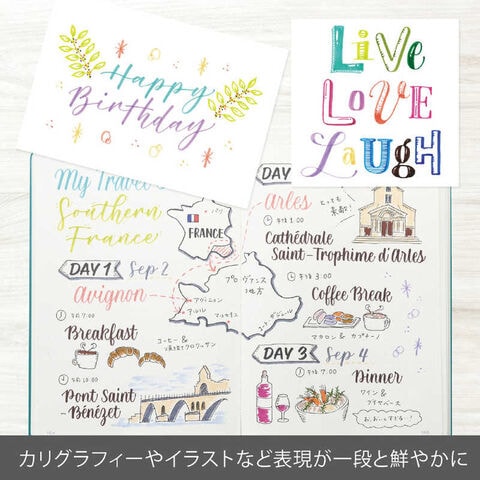 Happy
Birthday
LiVe
LOVE
LaugH
My Travel
Southern
France
DAY 1 Sep 2
Avignon
午前 7:00
Breakfast
コーヒー &
午前 10:00
Pont Saint
-Bénézet
パリ
FRANCE
プロヴァンス
地方
アヴィニョン
アルル
マルセイユ
DAY
Arles
とっても
素敵!
午後 1:00
Cathédrale
Saint-Trophime d'Arles
午後 3:00
Coffee Break
マカロン & カプチーノ
DAY 3 Sep 4
午後 7:00
Dinner
ワイン &
ブイヤベース
カリグラフィーやイラストなど表現が一段と鮮やかに